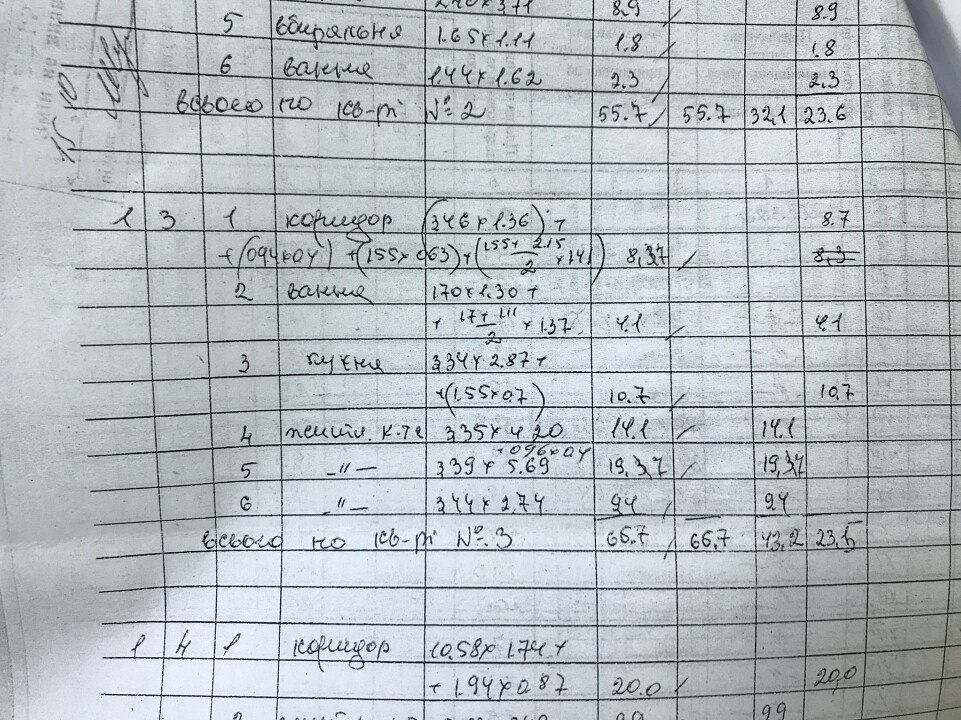 2.40×3.71 8.9 / 8.9
5 вбиральня 1.65×1.11 1.8 / 1.8
6 ванна 1.44×1.62 2.3 / 2.3
всього по кв-рі №2 55.7 / 55.7 32,1 23.6
1 3 1 коридор (3,46×1.36)+ 8.7
+(0.94×0.4)+(1.55×0.63)+(1.55+2.15/2×1.41) 8,37 / 8,3
2 ванна 1.70×1.30+
+ 1.7+1.11/2 × 1.37 4.1 / 4.1
3 кухня 3,34×2.87+
+(1.55×0.7) 10.7 / 10.7
4 житл. к-та 3,35×4,20 14.1 / 14.1
+0.96×0.4
5 –"– 3,39×5.69 19,37 / 19,37
6 –"– 3,44×2.74 9.4 / 9.4
всього по кв-рі №3 66.7 / 66,7 43,2 23,5
1 4 1 коридор 10.58×1.74+
+1.94×0.87 20.0 / 20,0